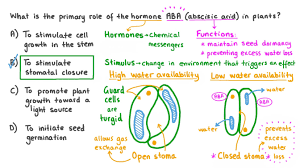 What is the primary role of the hormone ABA (abscisic acid) in plants?
A) To stimulate cell
growth in the stem
B) To stimulate
stomatal closure
C) To promote plant
growth toward a
light source
D) To initiate seed
germination
Hormones - chemical
messengers
Functions:
* maintain seed dormancy
* preventing excess water loss
Stimulus - change in environment that triggers an effect
High water availability
Low water availability
Guard
cells
are
turgid
allows gas
exchange
Open stoma
water
ABA
ABA
water
*Closed stoma*
prevents
excess
water
loss